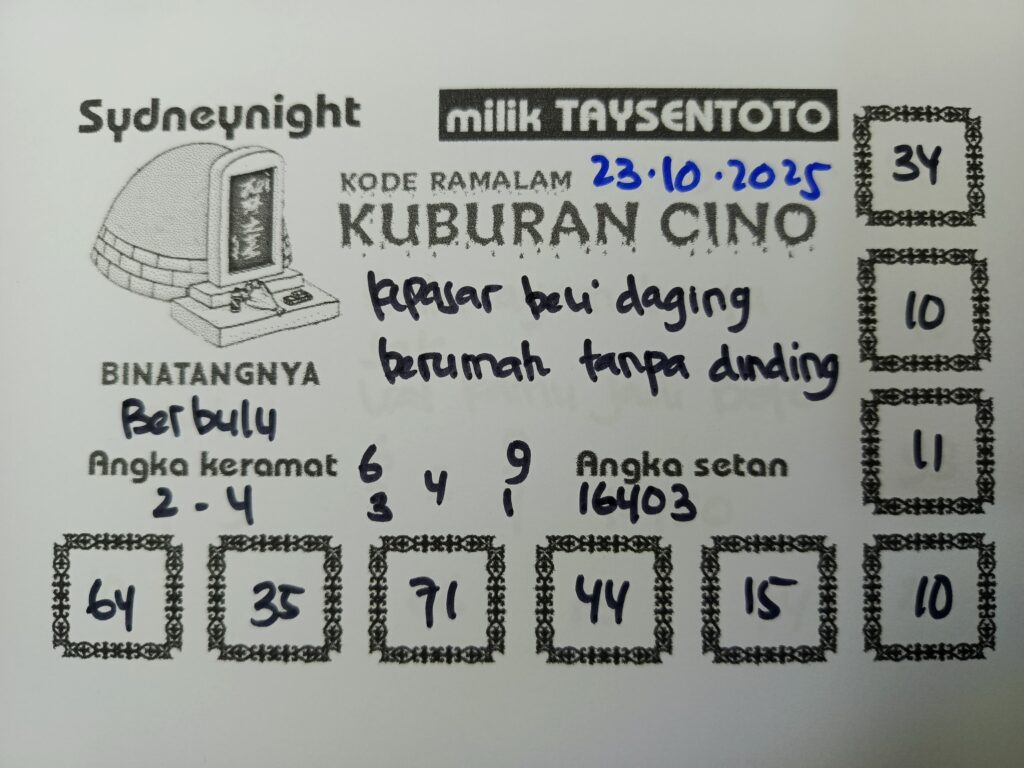 Sydneynight
milik TAYSENTOTO
KODE RAMALAM 23.10.2025
KUBURAN CINO
kepasar beli daging
berumah tanpa dinding
BINATANGNYA
Berbulu
Angka keramat
2 - 4
6 9
4
3 1
Angka setan
16403
34
10
11
64 35 71 44 15 10